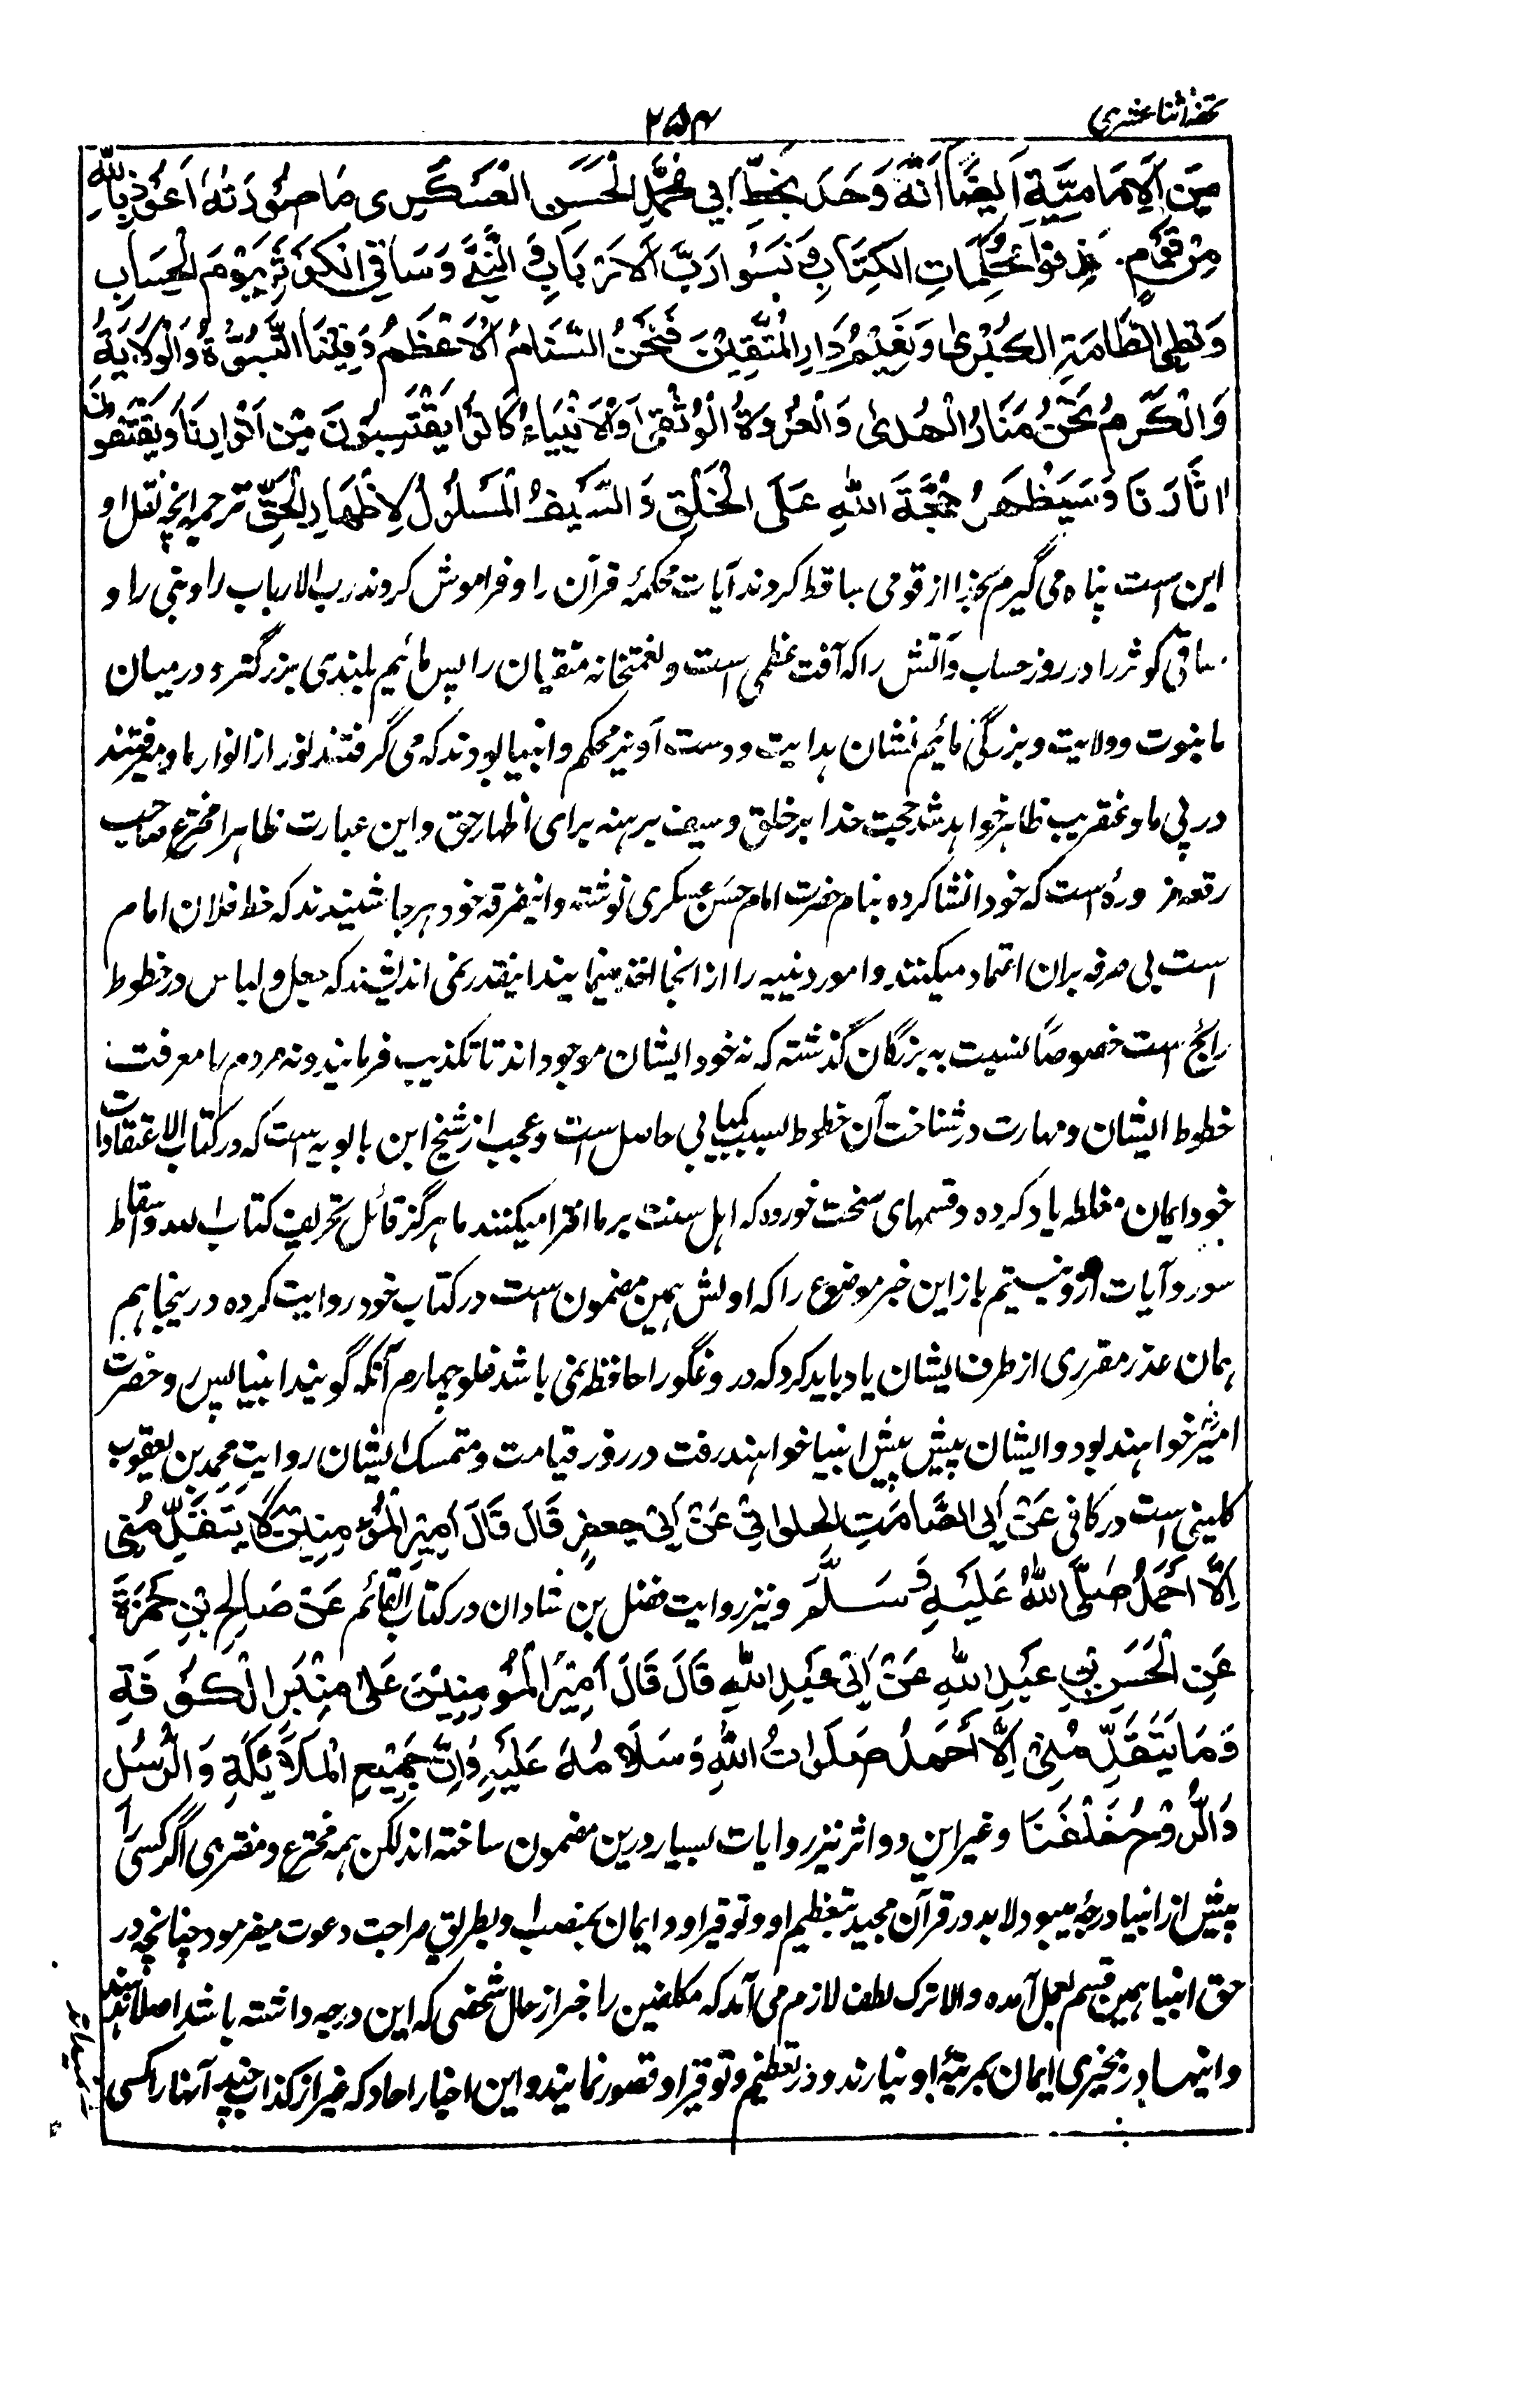 تحفه اثنا عشری
۲۵۴
مِنَ الْاِمَامِيَّةِ اَيضًا اَنَّهُ وَجَدَ بِخَطِّ اَبِي مُحَمَّدِ الْحَسَنِ الْعَسْكَرِى مَا صُوْرَتُهُ اَعُوْذُ بِاللّٰهِ
مِنْ قَوْمٍ حَذفُوا مُحْكَمَاتِ الكِتَابِ وَ نَسُوا رَبَّ الْاَرْبَابِ وَ النَّبِيَّ وَ سَاقِي الْكَوْثَرِ يَوْمَ الْحِسَابِ
وَ لظى الطَّامَّةِ الكُبْرىٰ وَ نَعِيْمُ دَارِ الْمُتَّقِيْنَ فَنَحْنُ السَّنَامُ الْاَعْظَمُ وَفِيْنَا النُّبُوَّةُ وَ الْوَلَايَةُ
وَ الْكَرَمُ نَحْنُ مَنَارُ الْهُدىٰ وَ الْعُرْوَةُ الْوُثْقىٰ وَ الْاَنْبِيَاءُ كَانُوا يَقْتَبِسُوْنَ مِنْ اَنْوَارِنَا وَ يَقْتَفُونَ
اٰثَارَنَا وَ سَيَظْهَرُ حُجَّةَ اللّٰهِ عَلَى الْخَلْقِ وَ السَّيْفُ الْمَسْلُوْلُ لِاِظْهَارِ الْحَقِّ ترجمه انچه نقل او
این است پناه می گیرم بخدا از قومی ساقط کردند آیات محکمهٔ قرآن را و فراموش کردند رب الارباب را و نبی را و
ساقی کوثر را در روز حساب و آتش را که آفت عظمی است و نعمتخانه متقیان را پس مائیم بلندی بزرگتر و درمیان
ما نبوت و ولایت و بزرگی مائیم نشان هدایت و دست آویز محکم و انبیا بودند که می گرفتند نور از انوار ما و میرفتند
در پی ما و عنقریب ظاهر خواهد شد حجت خدا بر خلق و سیف برهنه برای اظهار حق و این عبارت ظاهرا مخترع صاحب
رقعه مزوره است که خود انشا کرده بنام حضرت امام حسن عسکری نوشته و اینفرقه خود هر جا شنیدند که خط فلان امام
است بی صرفه بران اعتماد میکنند و امور دینیه را از انجا اخذ مینمایند اینقدر نمی اندیشند که جعل و لباس در خطوط
رائج است خصوصاً نسبت به بزرگان گذشته که نه خود ایشان موجود اند تا تکذیب فرمایند و نه مردم را معرفت
خطوط ایشان و مهارت در شناخت آن خطوط بسبب کمیابی حاصل است و عجب از شیخ ابن بابویه است که در کتاب الاعتقادات
خود ایمان مغلظه یاد کرده و قسمهای سخت خورده که اهل سنت بر ما افترا میکنند ما هرگز قائل تحریف کتاب الله و اسقاط
سور و آیات ازو نیستیم باز این خبر موضوع را که اولش همین مضمون است در کتاب خود روایت کرده درینجا هم
همان عذر مقرری از طرف ایشان یاد باید کرد که دروغگو را حافظه نمی باشد غلو چهارم آنکه گویند انبیا پس رو حضرت
امیر خواهند بود و ایشان پیش پیش انبیا خواهند رفت در روز قیامت و متمسک ایشان روایت محمد بن یعقوب
کلینی است در کافی عَنْ اَبِى الصَّامَتِ الحلوانِيْ عَنْ اَبِيْ جعفرٍ قَالَ قَالَ اَمِيْرُ الْمُؤْمِنِيْنَ لَا يَتَقَدَّمُنِى
اِلَّا اَحْمَدُ صَلَّى اللّٰهُ عَلَيْهِ وَ سَلَّمَ و نیز روایت فضل بن شاذان در کتاب القائم عَنْ صَالِحِ بْنِ حَمْزَةَ
عَنِ الْحَسَنِ بْنِ عَبْدِ اللّٰهِ عَنْ اَبِيْ عَبْدِ اللّٰهِ قَالَ قَالَ اَمِيْرُ الْمُؤْمِنِيْنَ عَلىٰ مِنْبَرِ الْكُوْفَةِ
وَ مَا يَتَقَدَّمُنِىْ اِلَّا اَحْمَدُ صَلَوَاتُ اللّٰهِ وَ سَلَامُهُ عَلَيْهِ وَ اِنَّ جَمِيْعَ الْمَلَائِكَةِ وَ الرُّسُلِ
وَ الرُّوْحُ خَلْفَنَا و غیر این دو اثر نیز روایات بسیار درین مضمون ساخته اند لکن همه مخترع و مفتری اگر کسی را
بیش از انبیا درجه میبود لابد در قرآن مجید بتعظیم او و توقیر او و ایمان بمنصب او بطریق صراحت دعوت میفرمود چنانچه در
حق انبیا همین قسم بعمل آمده و الا ترک لطف لازم می آمد که مکلفین را خبر از حال شخصی که این درجه داشته باشد اصلا ندهند
و اینها در بیخبری ایمان بمرتبهٔ او نیارند و در تعظیم و توقیر او قصور نمایند و این اخبار احاد که غیر از کذاب چند آنها را کسی